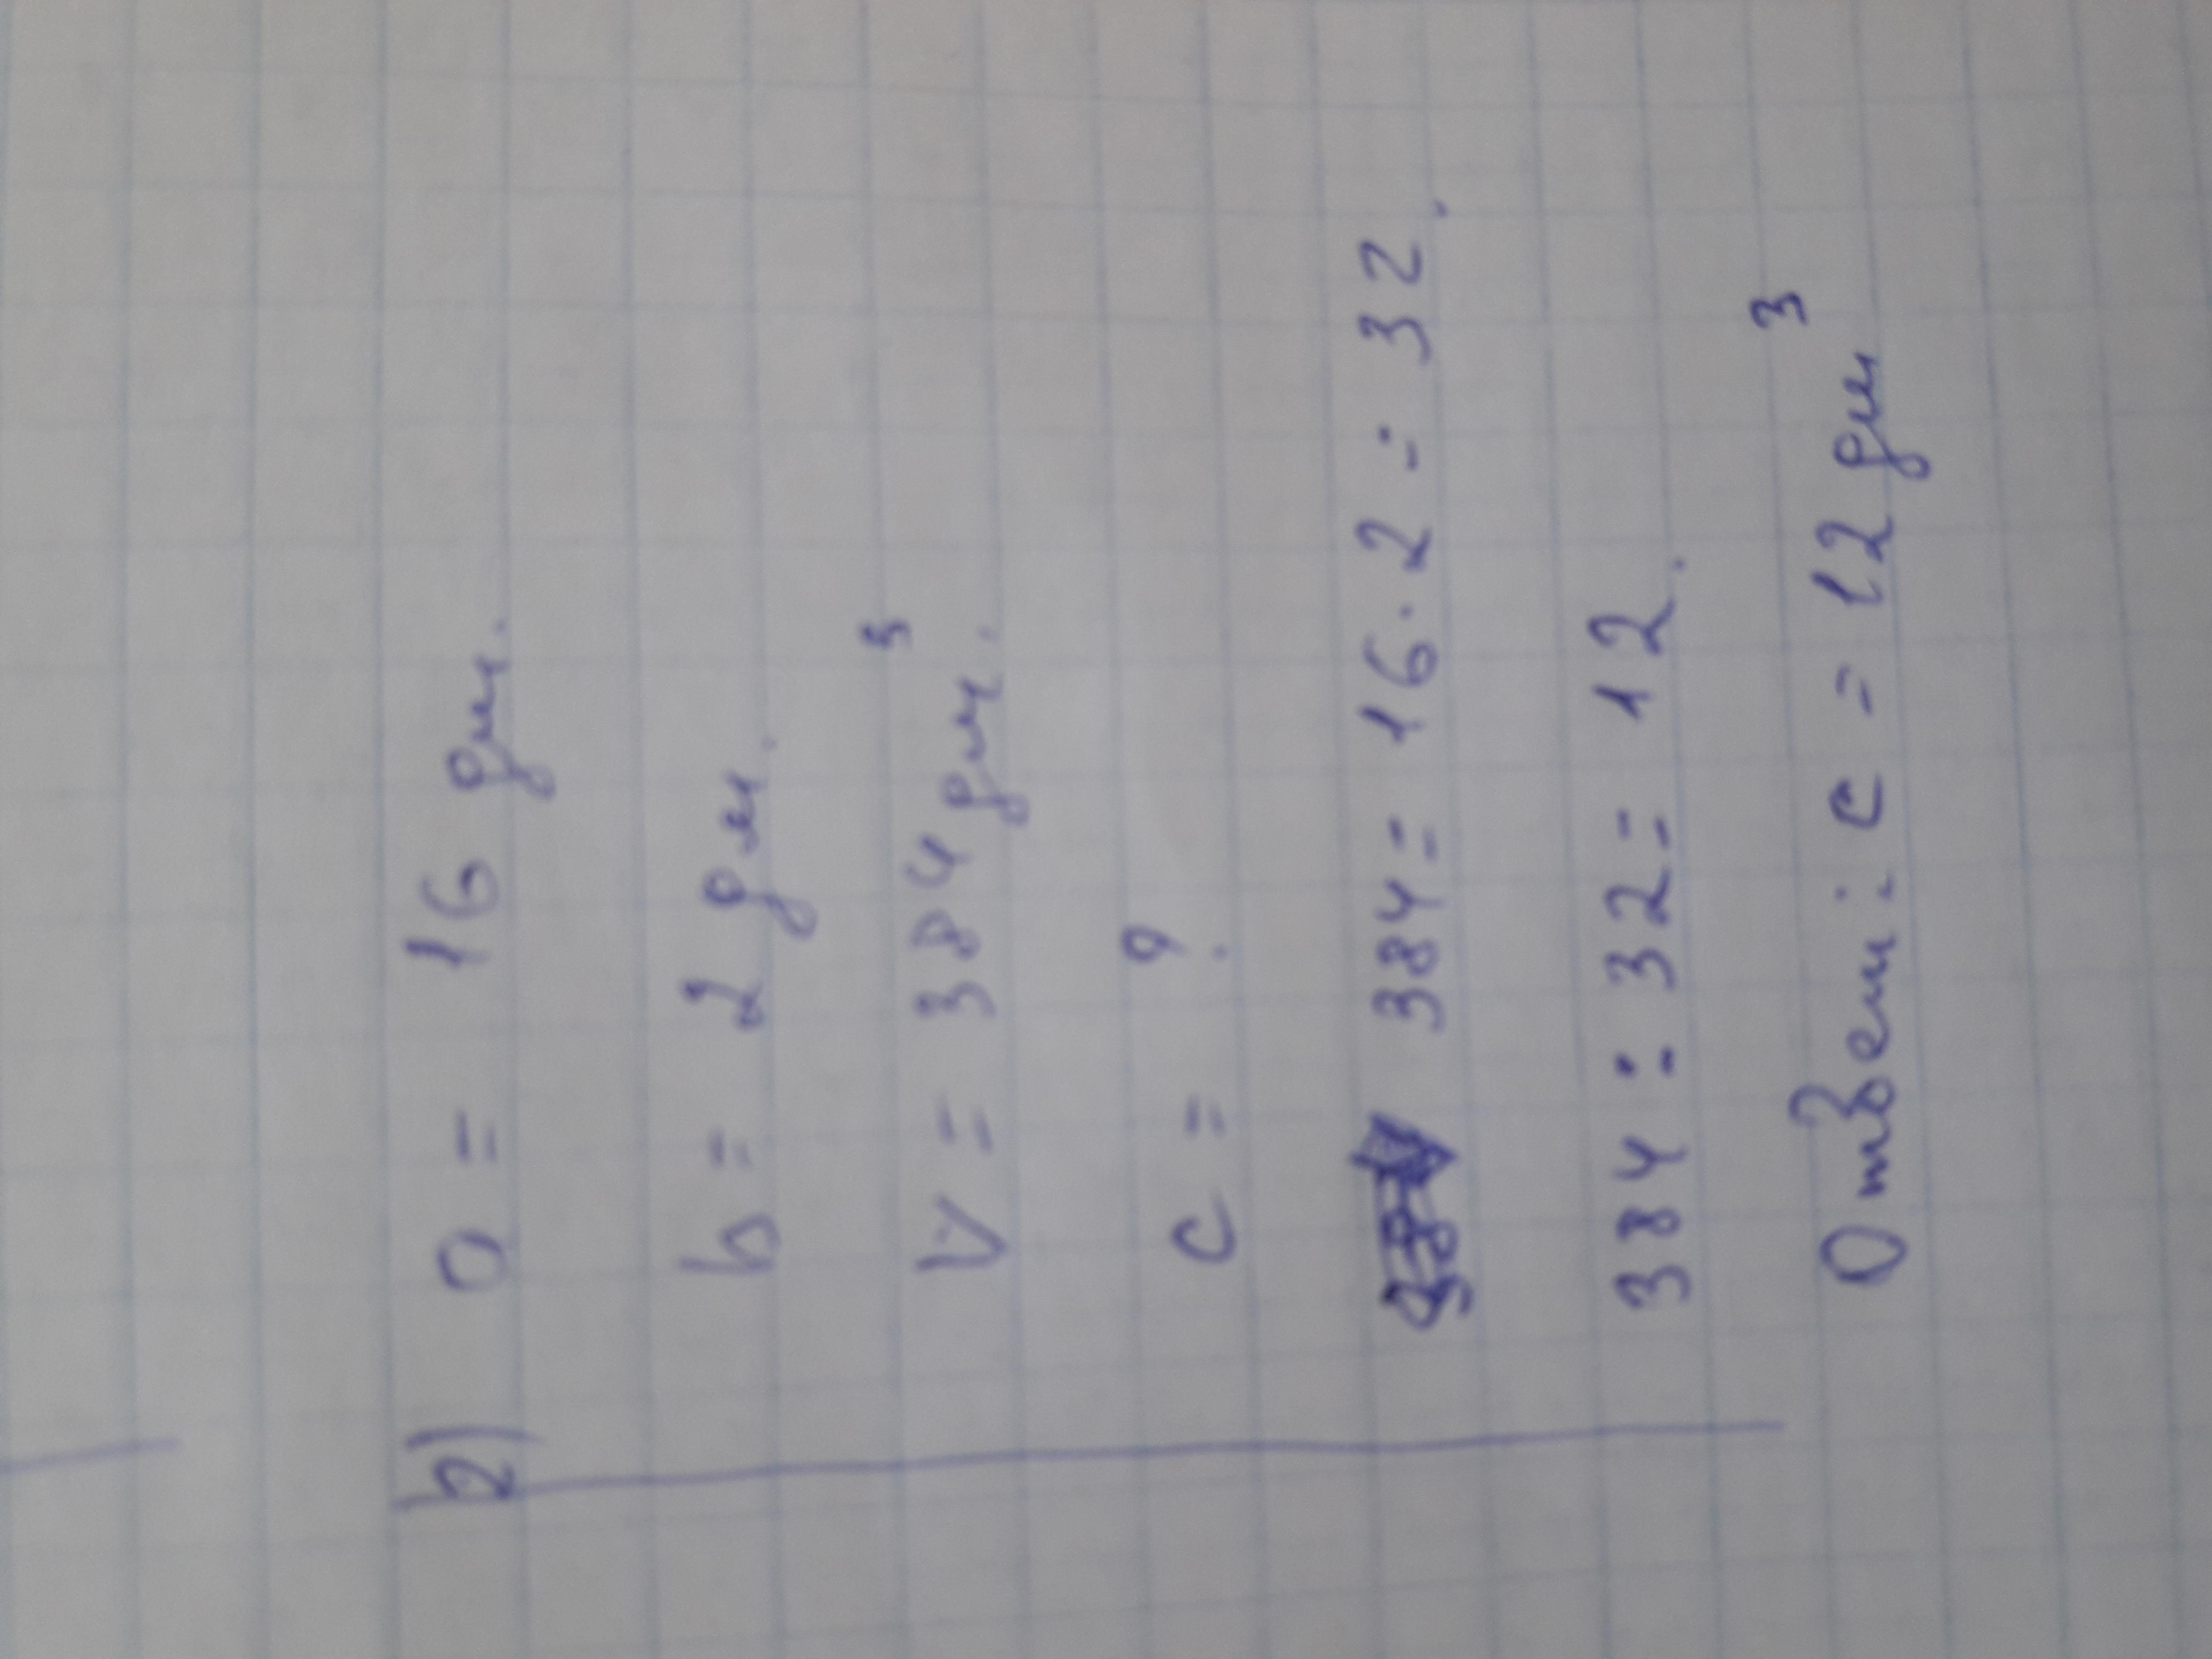 б) a = 16 дм.
b = 2 дм.
V = 384 дм³.
c = ?
384 = 16 · 2 = 32.
384 : 32 = 12.
Ответ: c = 12 дм³